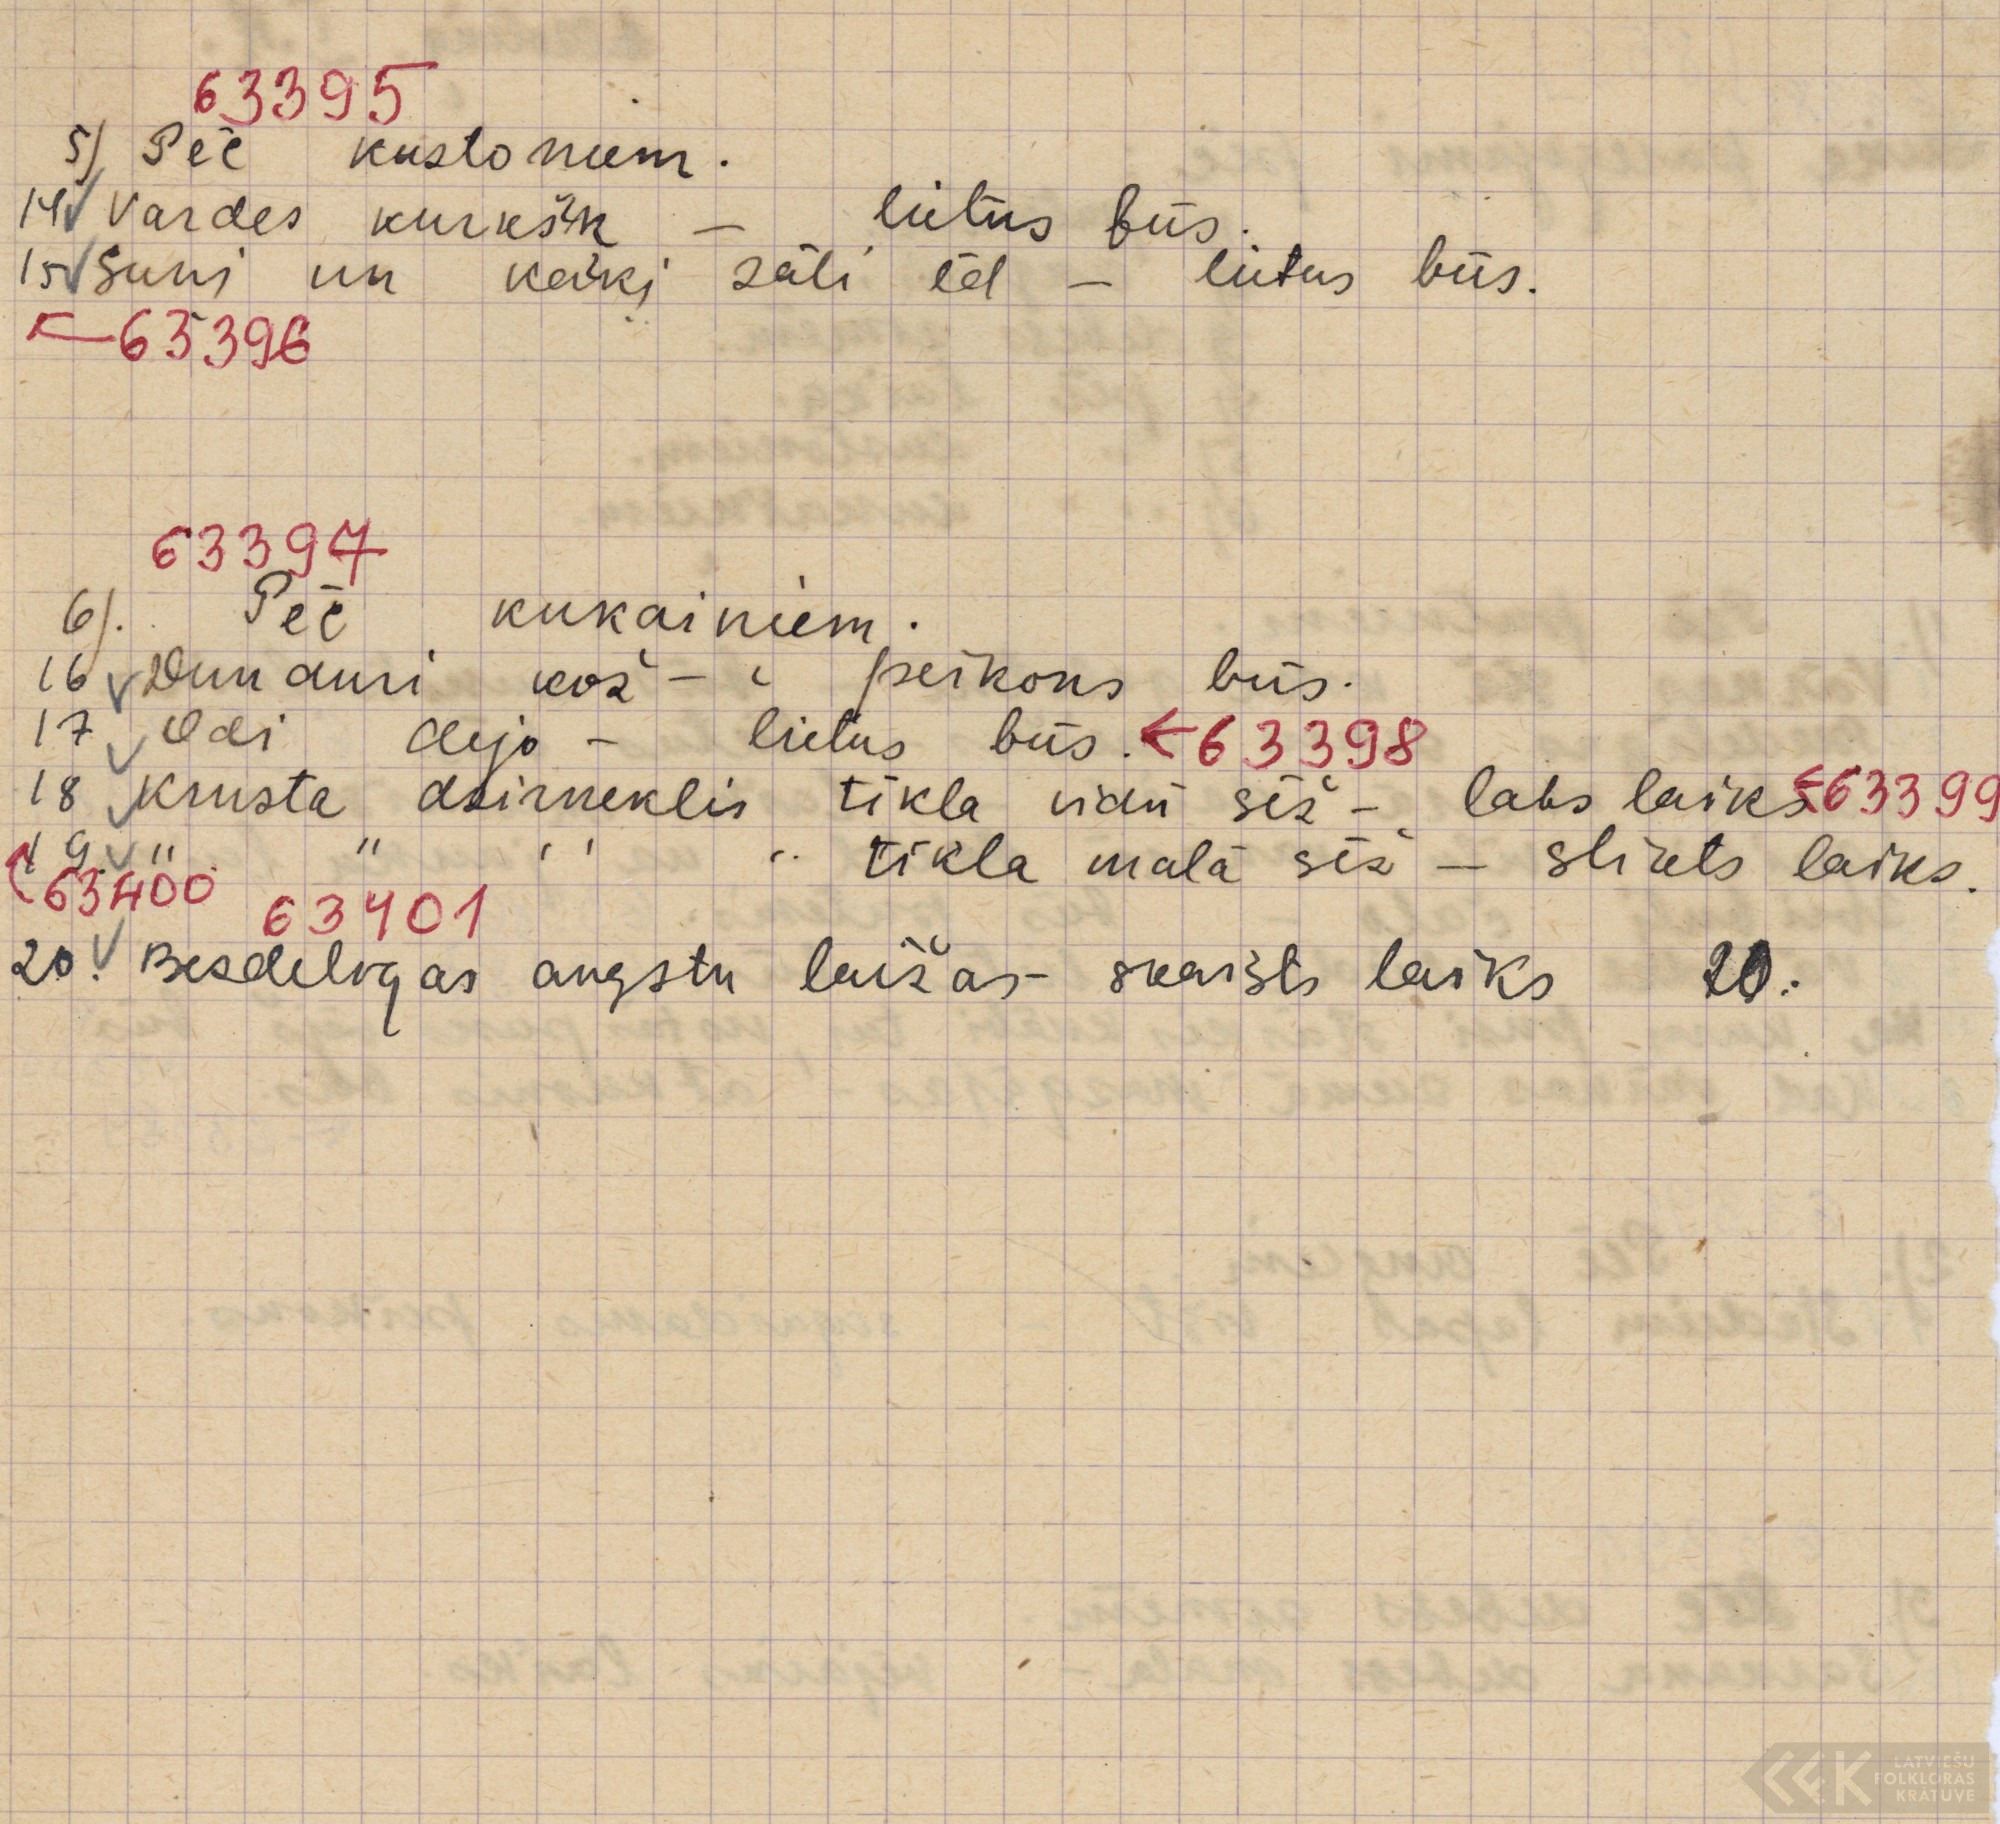 63395
5) Pēc kustoniem.
14 Vardes kurkšk — lietus būs.
15 Suņi un kaķi zāli ēd — lietus būs.
←63396
63397
6). Pēc kukainiem.
16 Dunduri kož — pērkons būs.
17 Odi dejo — lietus būs. ←63398
18 Krusta dzirneklis tīkla vidū sēž — labs laiks ←63399
19 " " " " tīkla malā sēž — slikts laiks.
63400 63401
20. Bezdelīgas augstu laižas — skaists laiks 20.
LATVIEŠU
FOLKLORAS
KRĀTUVE